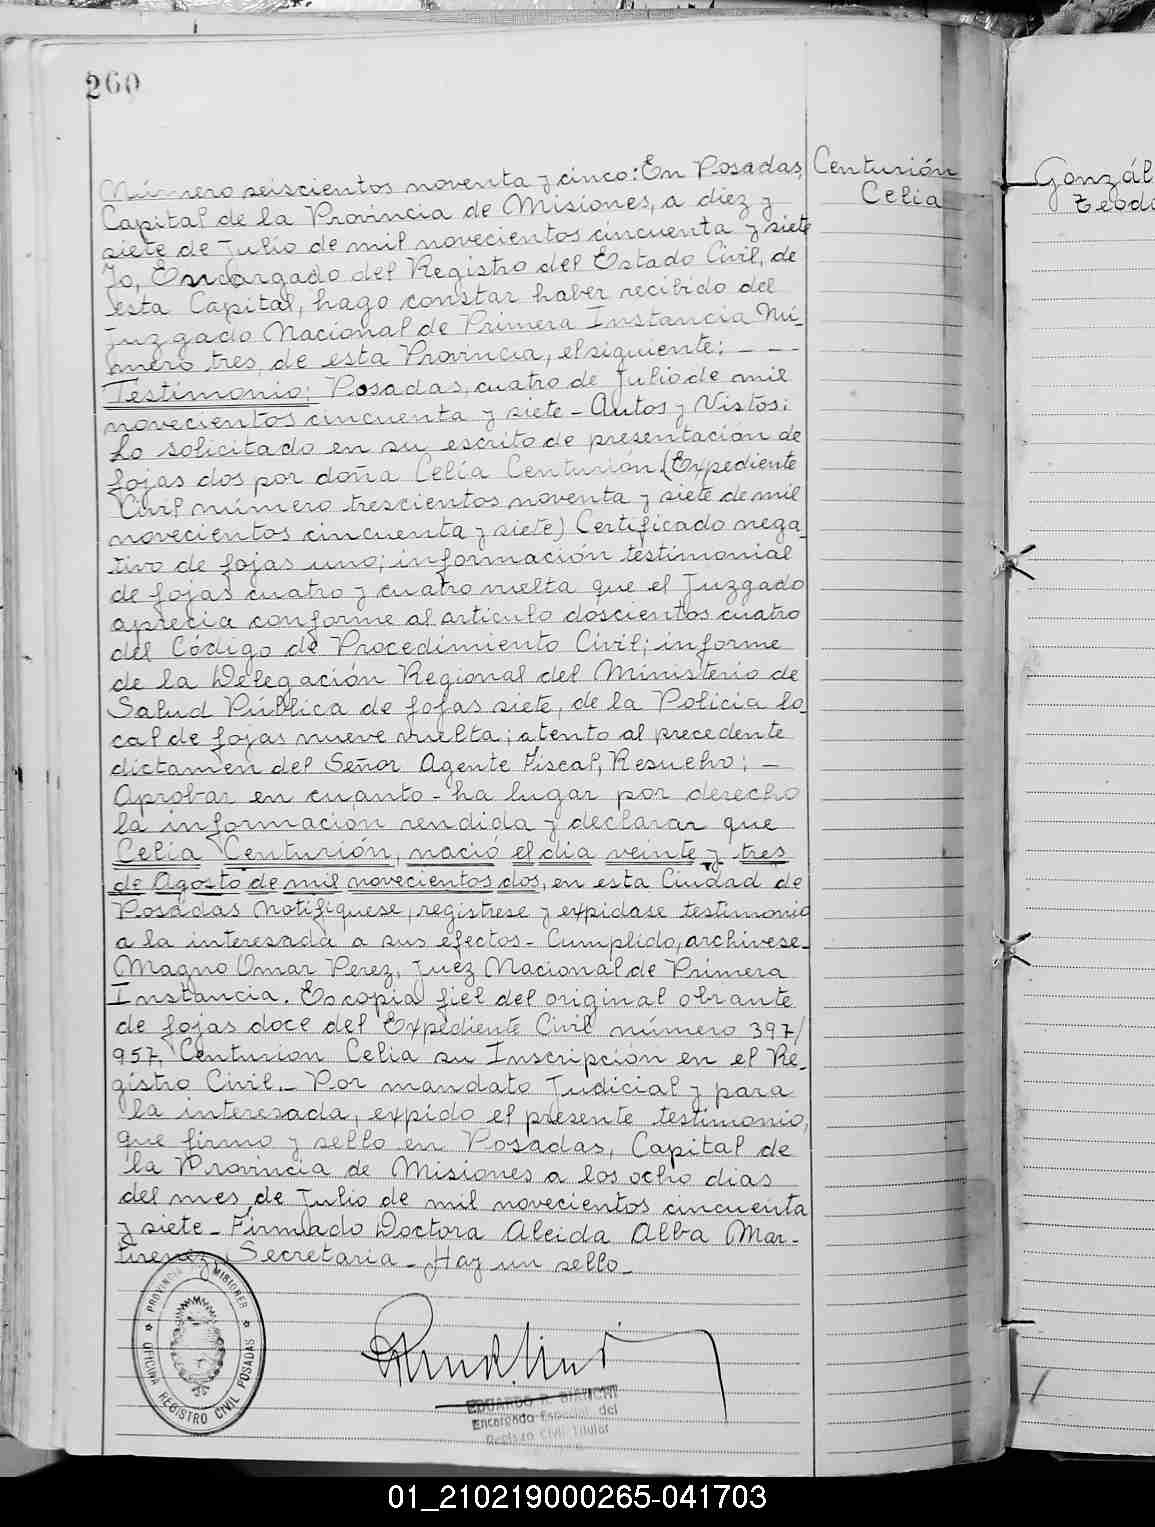 260
Número seiscientos noventa y cinco: En Posadas,
Capital de la Provincia de Misiones, a diez y
siete de Julio de mil novecientos cincuenta y siete
Yo, Encargado del Registro del Estado Civil, de
esta Capital, hago constar haber recibido del
Juzgado Nacional de Primera Instancia Nú-
mero tres, de esta Provincia, el siguiente: - - -
Testimonio: Posadas, cuatro de Julio de mil
novecientos cincuenta y siete - Autos y Vistos:
Lo solicitado en su escrito de presentación de
fojas dos por doña Celia Centurión (Expediente
Civil número trescientos noventa y siete de mil
novecientos cincuenta y siete) Certificado nega-
tivo de fojas uno; información testimonial
de fojas cuatro y cuatro vuelta que el Juzgado
aprecia conforme al artículo doscientos cuatro
del Código de Procedimiento Civil; informe
de la Delegación Regional del Ministerio de
Salud Pública de fojas siete, de la Policia lo-
cal de fojas nueve vuelta; atento al precedente
dictamen del Señor Agente Fiscal, Resuelvo: -
Aprobar en cuanto - ha lugar por derecho
la información rendida y declarar que
Celia Centurión, nació el dia veinte y tres
de Agosto de mil novecientos dos, en esta Ciudad de
Posadas Notifiquese, registrese y expidase testimonio
a la interesada a sus efectos - Cumplido, archivese -
Magno Omar Perez, Juez Nacional de Primera
Instancia. Es copia fiel del original obrante
de fojas doce del Expediente Civil número 397/
957. Centurion Celia su Inscripción en el Re-
gistro Civil. - Por mandato Judicial y para
la interesada, expido el presente testimonio,
que firmo y sello en Posadas, Capital de
la Provincia de Misiones a los ocho dias
del mes de Julio de mil novecientos cincuenta
y siete - Firmado Doctora Aleida Alba Mar-
tinez, Secretaria - Hay un sello -
Centurión
Celia
Gonzál
Teodo
PROVINCIA DE MISIONES
OFICINA REGISTRO CIVIL POSADAS
EDUARDO R.
Encargado Especial del
Registro Civil Titular
01_210219000265-041703